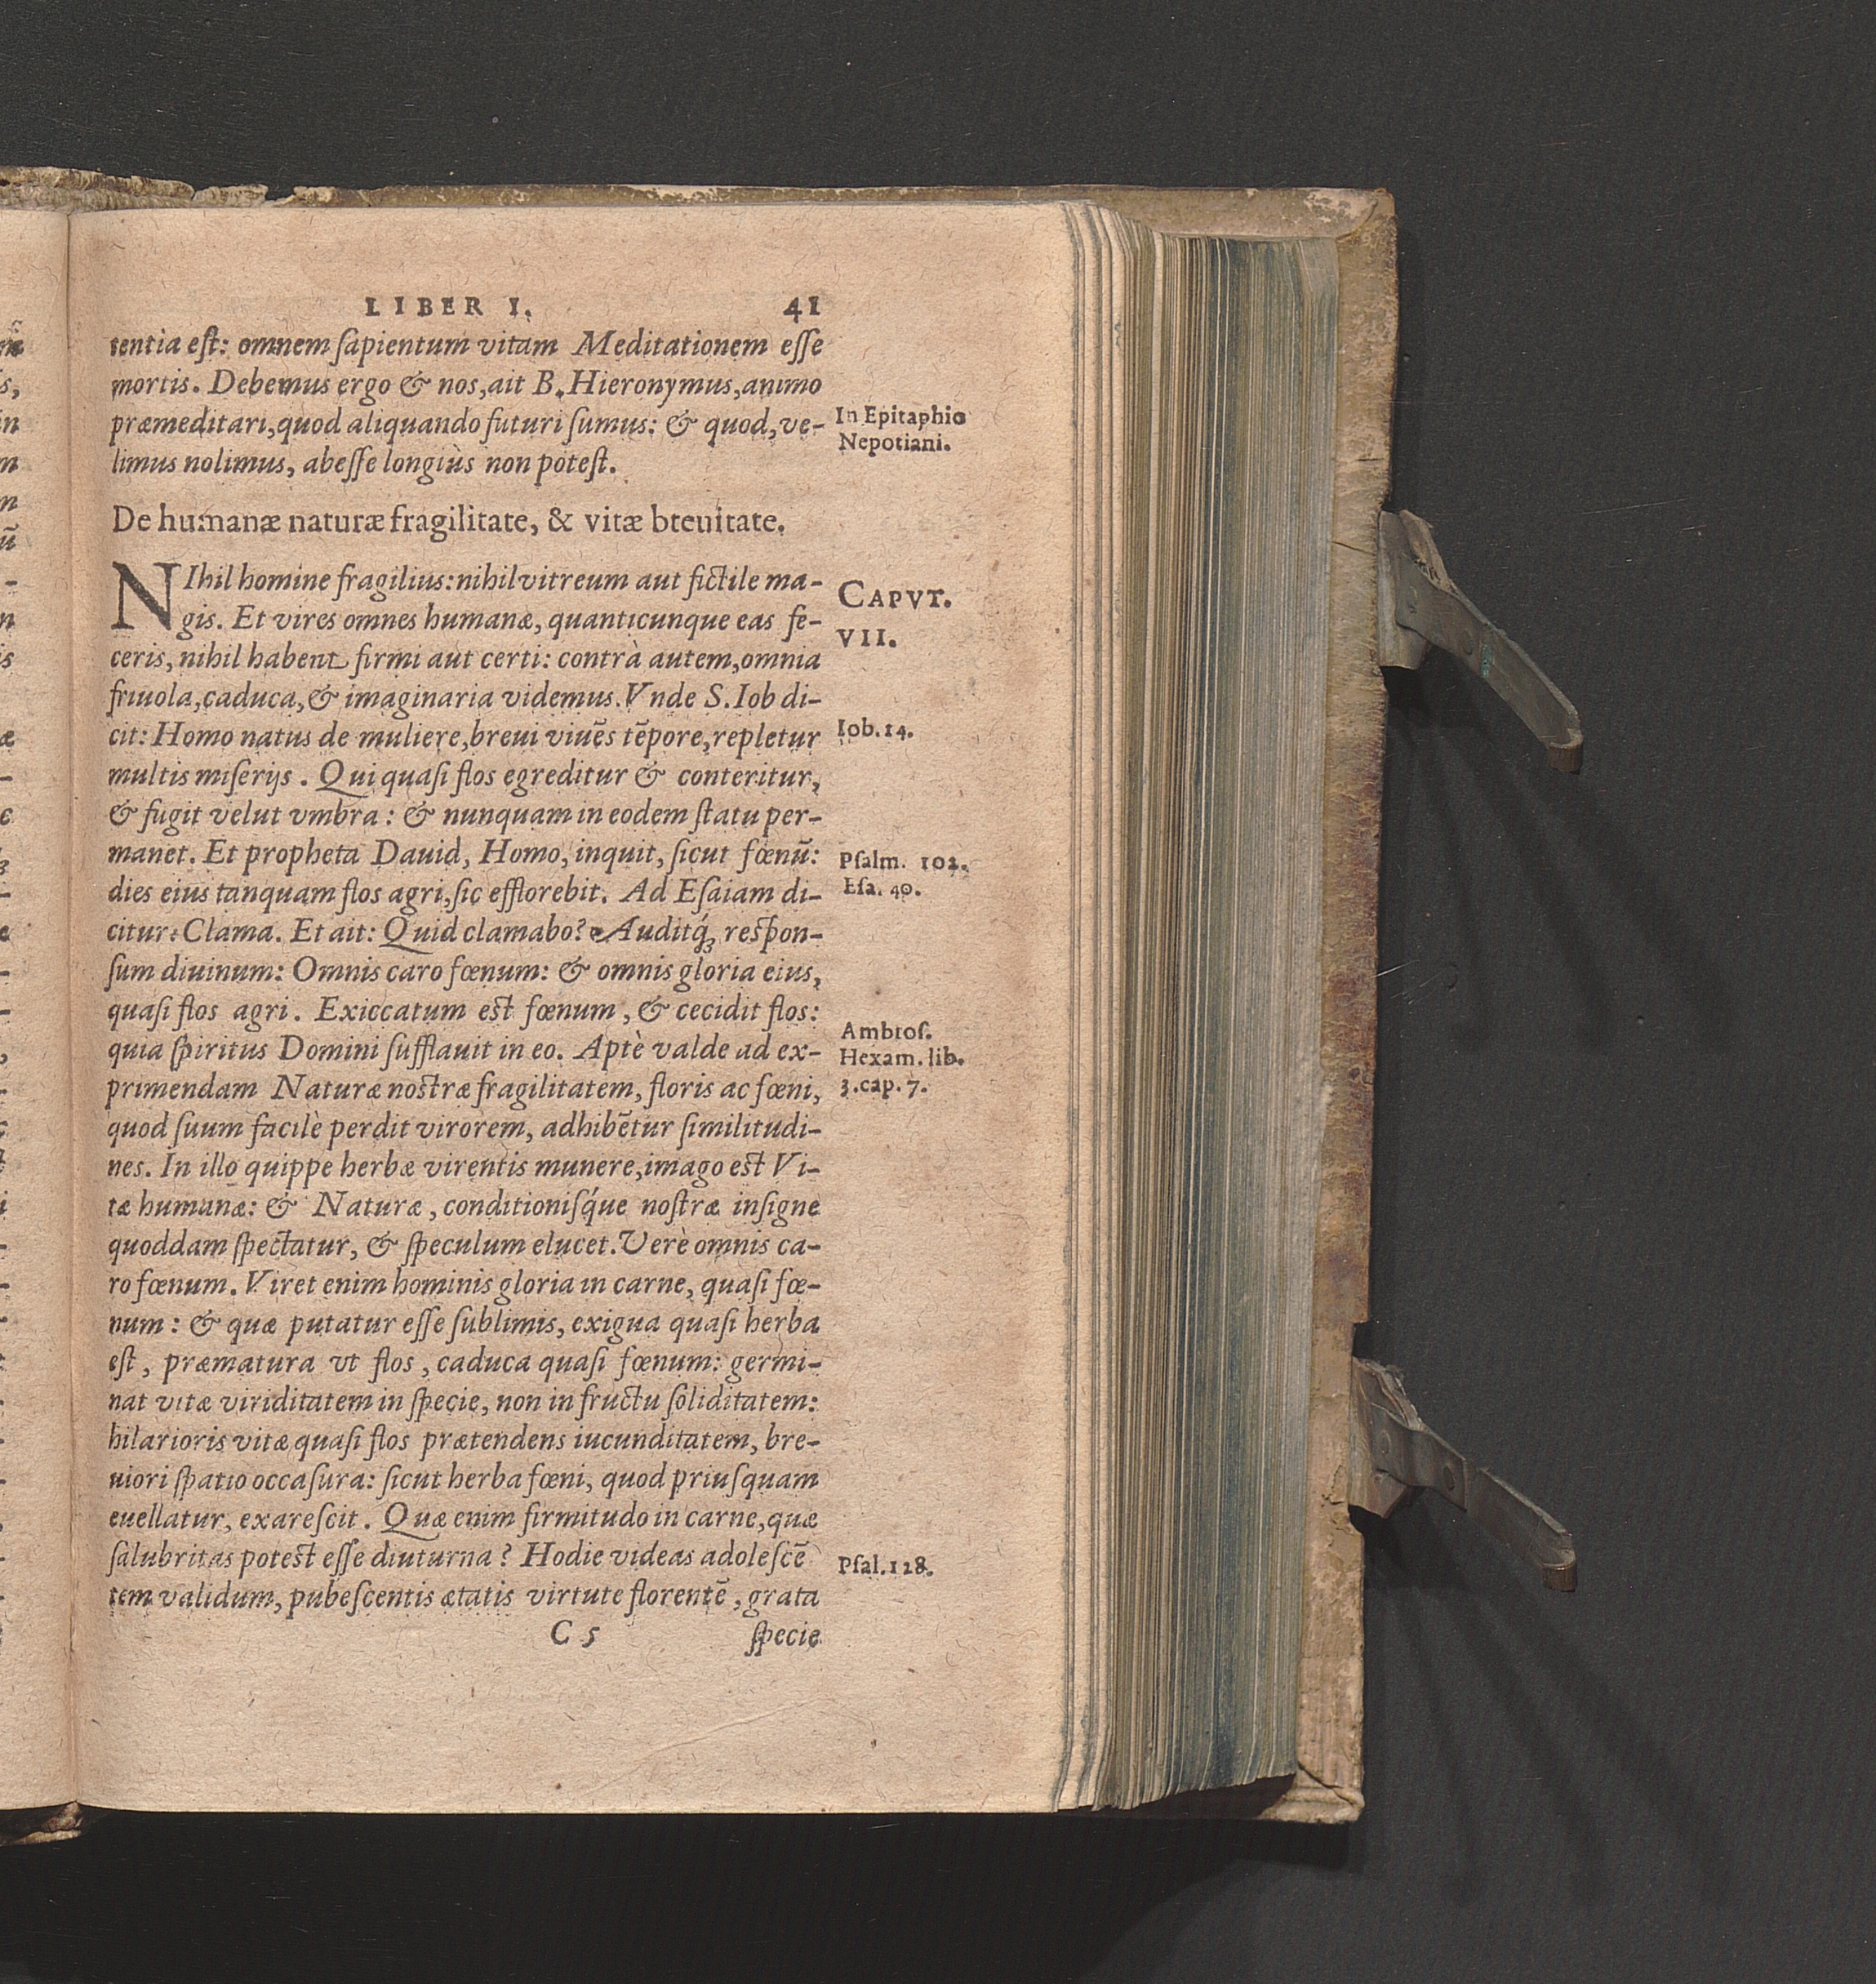 LIBER I. 41
tentia est: omnem sapientum vitam Meditationem esse
mortis. Debemus ergo & nos, ait B. Hieronymus, animo
præmeditari, quod aliquando futuri sumus: & quod, ve-
limus nolimus, abesse longiùs non potest.
In Epitaphio
Nepotiani.
De humanæ naturæ fragilitate, & vitæ breuitate.
NIhil homine fragilius: nihil vitreum aut fictile ma-
gis. Et vires omnes humanæ, quanticunque eas fe-
ceris, nihil habent firmi aut certi: contrà autem, omnia
friuola, caduca, & imaginaria videmus. Vnde S. Iob di-
cit: Homo natus de muliere, breui viuēs tēpore, repletur
multis miserijs. Qui quasi flos egreditur & conteritur,
& fugit velut vmbra: & nunquam in eodem statu per-
manet. Et propheta Dauid, Homo, inquit, sicut fœnū:
dies eius tanquam flos agri, sic efflorebit. Ad Esaiam di-
citur: Clama. Et ait: Quid clamabo? Auditq́; respon-
sum diuinum: Omnis caro fœnum: & omnis gloria eius,
quasi flos agri. Exiccatum est fœnum, & cecidit flos:
quia spiritus Domini sufflauit in eo. Aptè valde ad ex-
primendam Naturæ nostræ fragilitatem, floris ac fœni,
quod suum facilè perdit virorem, adhibētur similitudi-
nes. In illo quippe herbæ virentis munere, imago est Vi-
tæ humanæ: & Naturæ, conditionisq́ue nostræ insigne
quoddam spectatur, & speculum elucet. Verè omnis ca-
ro fœnum. Viret enim hominis gloria in carne, quasi fœ-
num: & quæ putatur esse sublimis, exigua quasi herba
est, præmatura vt flos, caduca quasi fœnum: germi-
nat vitæ viriditatem in specie, non in fructu soliditatem:
hilarioris vitæ quasi flos prætendens iucunditatem, bre-
uiori spatio occasura: sicut herba fœni, quod priusquam
euellatur, exarescit. Quæ enim firmitudo in carne, quæ
salubritas potest esse diuturna? Hodie videas adolescē
tem validum, pubescentis ætatis virtute florentē, grata
C 5 specie
CAPVT.
VII.
Iob. 14.
Psalm. 102.
Esa. 40.
Ambros.
Hexam. lib.
3. cap. 7.
Psal. 128.